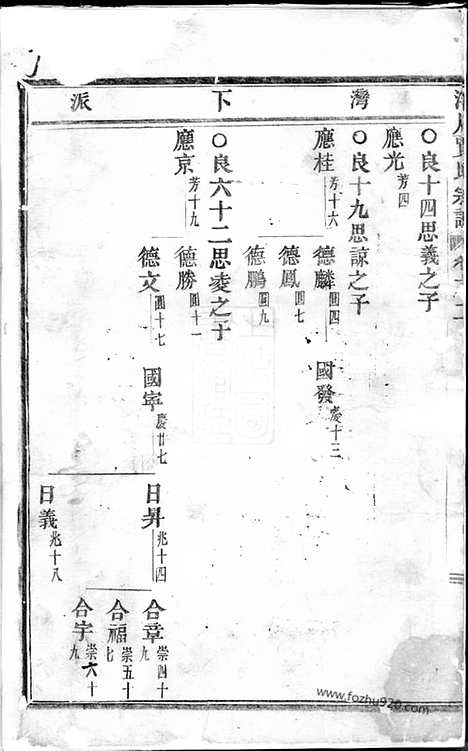 灣下派
○良十四思義之子
應光芳四
○良十九思諒之子
應桂芳十六 德麟圓四 國發慶十三
德鳳圓七
德鵬圓九
○良六十二思凌之子
應京芳十九 德勝圓十一
德文圓十七 國寧慶廿七 日昇兆十四 合章崇四十九
合福崇五十七
合宇崇六十九
日義兆十八
www.fozhu920.com